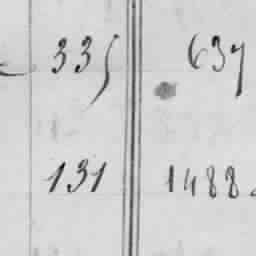 335 637
131 1488.